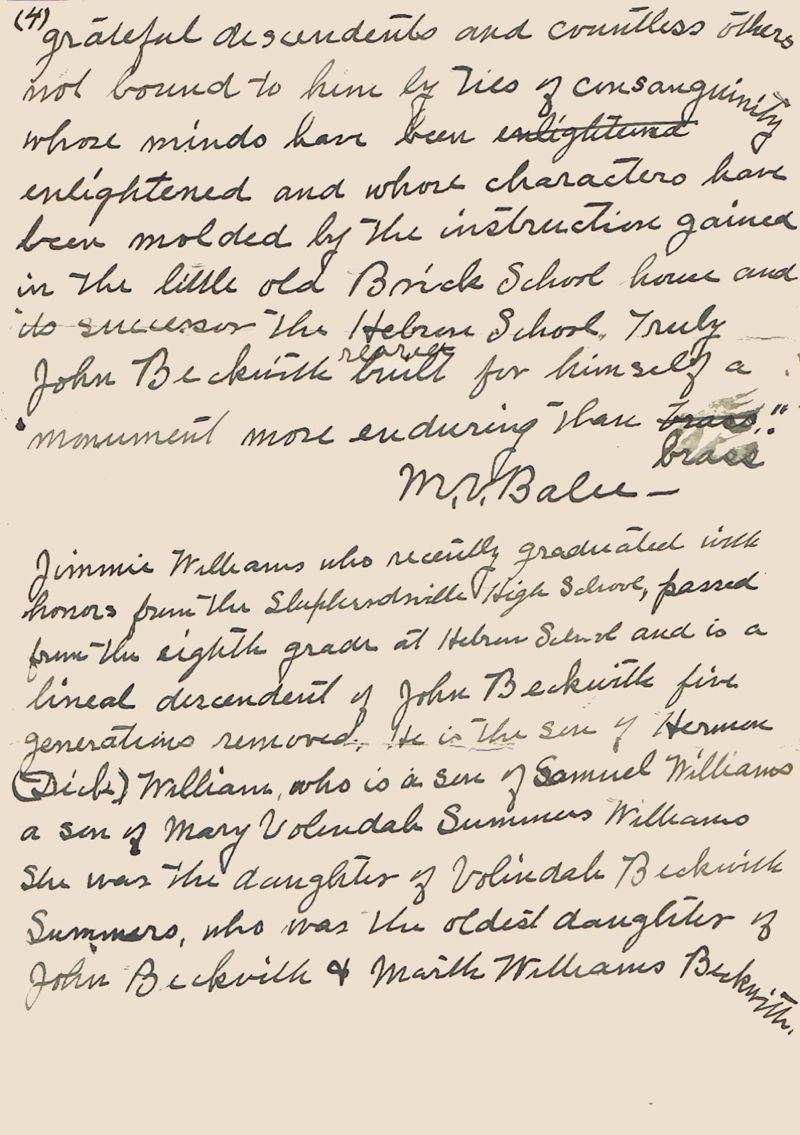 (4)
grateful descendents and countless others
not bound to him by ties of consanguinity
whose minds have been enlightened
enlightened and whose characters have
been molded by the instruction gained
in the little old Brick School house and
its successor the Hebron School. Truly
reared
John Beckwith built for himself a
"monument more enduring than brass."
brass
M.V. Balee —
Jimmie Williams who recently graduated with
honors from the Shepherdsville High School, passed
from the eighth grade at Hebron School and is a
lineal descendent of John Beckwith five
generations removed. He is the son of Hermon
(Dick) William, who is a son of Samuel Williams
a son of Mary Volindah Summers Williams
She was the daughter of Volindah Beckwith
Summers, who was the oldest daughter of
John Beckwith & Marth Williams Beckwith.